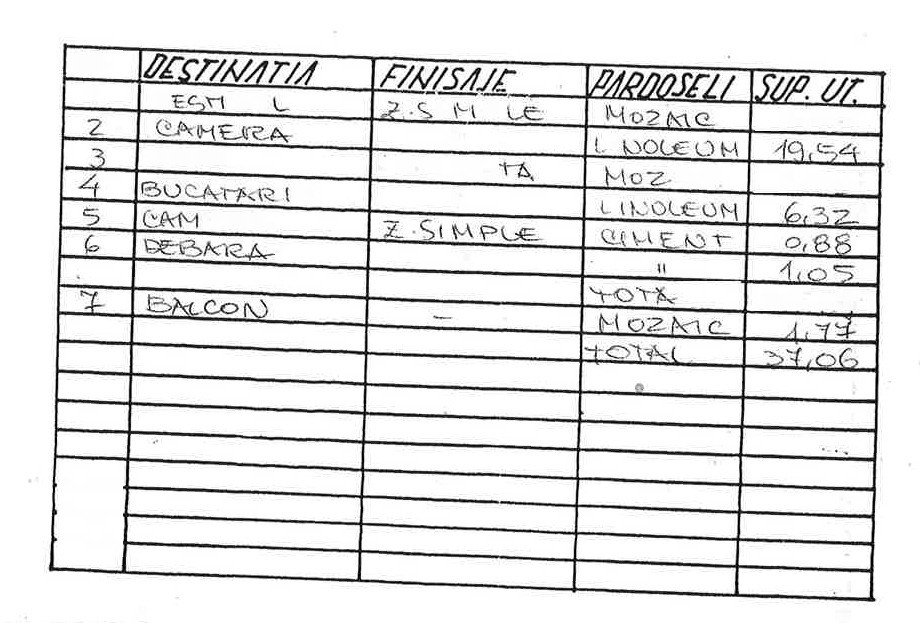 DESTINATIA FINISAJE PARDOSELI SUP. UT.
Z.S M LE MOZAIC
2 CAMERA L NOLEUM 19,54
3 TA MOZ
4 BUCATARI LINOLEUM 6,32
5 CAM Z.SIMPLE CIMENT 0,88
6 DEBARA " 1,05
TOTA
7 BALCON - MOZAIC 1,77
TOTAL 37,06